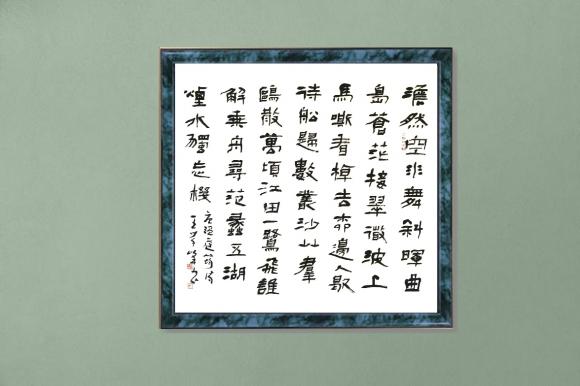 澹然空水對斜暉曲
島蒼茫接翠微波上
馬嘶看棹去柳邊人歇
待船歸數叢沙艸羣
鷗散萬頃江田一鷺飛誰
解乘舟尋范蠡五湖
煙水獨忘機
庭筠詩